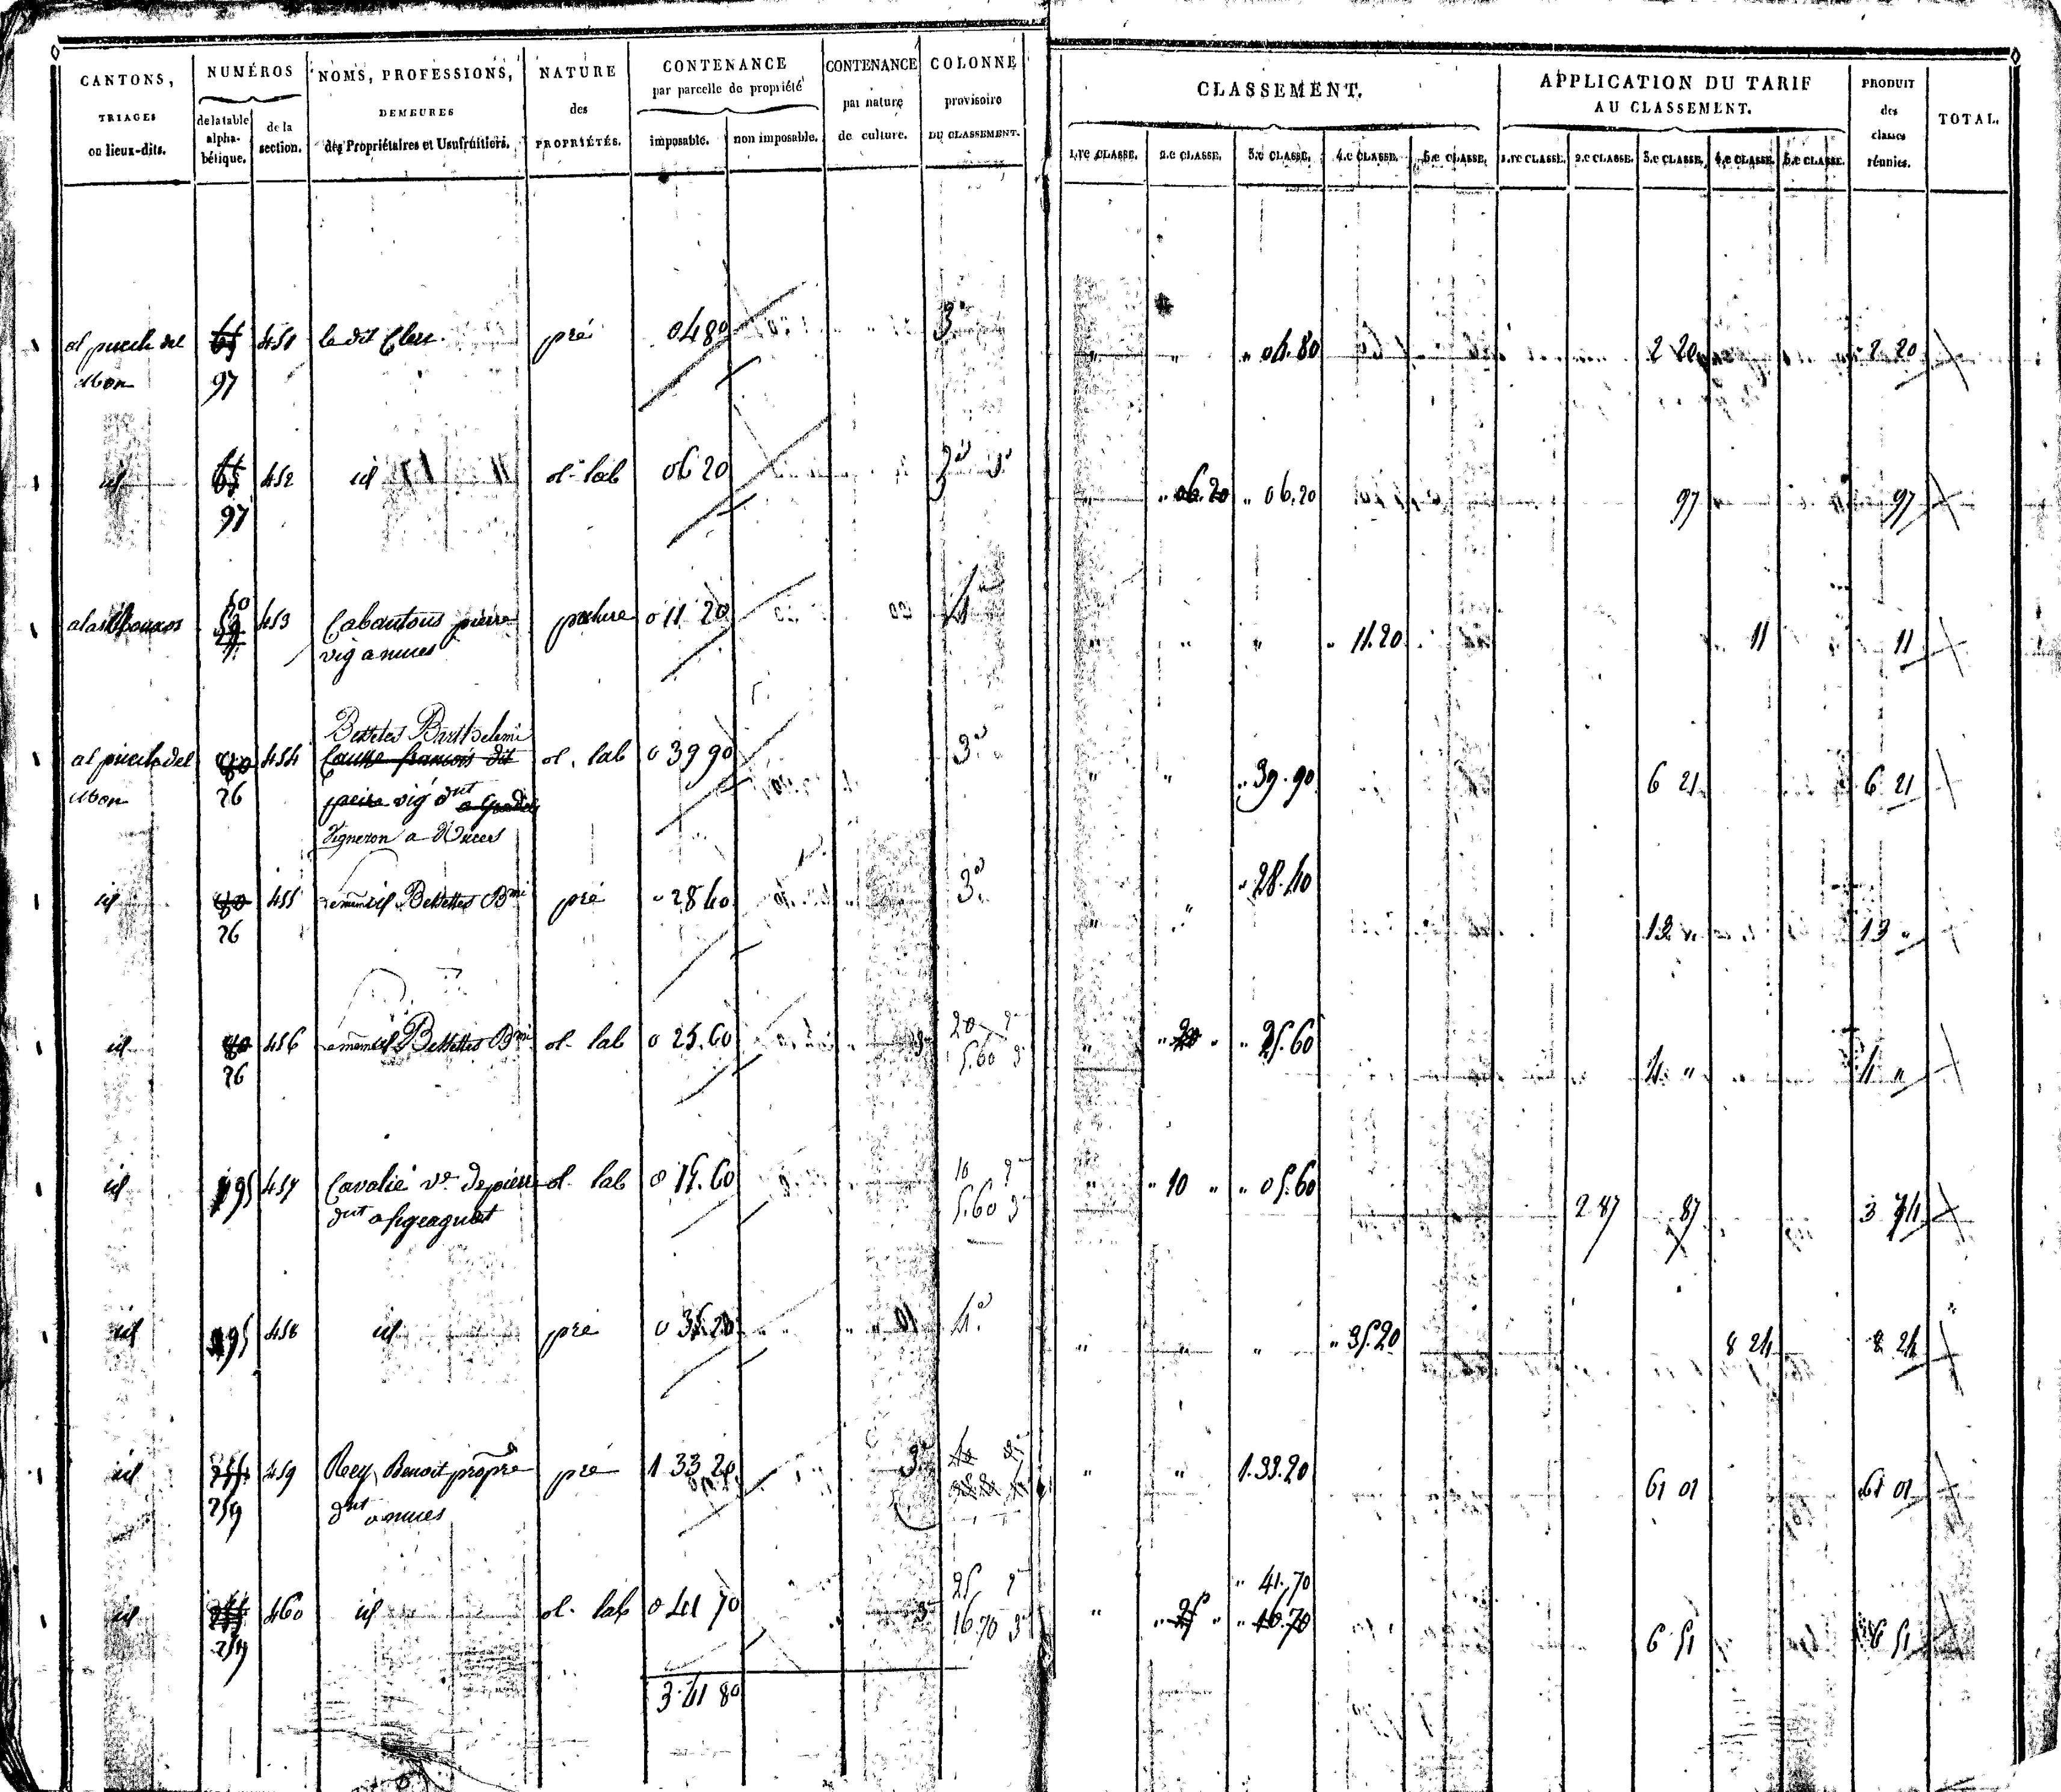 CANTONS, TRIAGES ou lieux-dits. NUMÉROS de la table alphabétique. de la section. NOMS, PROFESSIONS, DEMEURES des Propriétaires et Usufruitiers. NATURE des PROPRIÉTÉS. CONTENANCE par parcelle de propriété imposable. non imposable. CONTENANCE par nature de culture. COLONNE provisoire DU CLASSEMENT. CLASSEMENT. 1.re CLASSE. 2.e CLASSE. 3.e CLASSE. 4.e CLASSE. 5.e CLASSE. APPLICATION DU TARIF AU CLASSEMENT. 1.re CLASSE. 2.e CLASSE. 3.e CLASSE. 4.e CLASSE. 5.e CLASSE. PRODUIT des classes réunies. TOTAL.
al puech del 451 le dit pré 0 4 80 3e " " " 04.80 2 20 2 20
97
id 452 id ol. lab 06 20 3e " " 06.20 " 06.20 97 97
97
453 Cabantous pierre pature 0 11 20 4e " " " " 11.20 11 11
vig a nuces
Bettettes Barthelemi
al puech del 454 Causse francois dit ol. lab 0 39 90 3e " " " 39.90 6 21 6 21
26 vig dnt a
Vigneron a Nuces
id 455 id Bettettes Bmi pré 0 28 40 3e " " " 28.40 13 " 13 "
26
id 456 id Bettettes Bmi ol. lab 0 25.60 20 2e " " 20 " " 25.60 4 " 4 "
26 5.60 3e
id 195 457 Cavalié ve de pierre ol. lab 0 15.60 10 2e " " 10 " " 05.60 2 87 87 3 74
dnt a 5.60 3e
id 195 458 id pré 0 35.20 4e " " " " 35.20 8 24 8 24
id 459 Rey Benoit propre pré 1 33 20 3e " " 1.33.20 61 01 61 01
259 dnt a nuces
id 460 id ol. lab 0 41 70 25 2e " " 25 " " 41.70 6 51 6 51
259 16.70 3e " 16.70
3.41 80